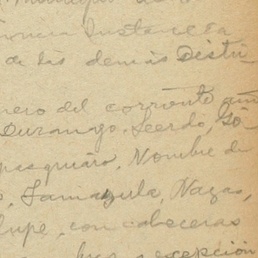 Instancia
de las demás Distri
nero del corriente año
Durango, Lerdo, So
pasquiaro, Nombre de
Tamazula, Nazas,
lupe, con cabeceras
excepción